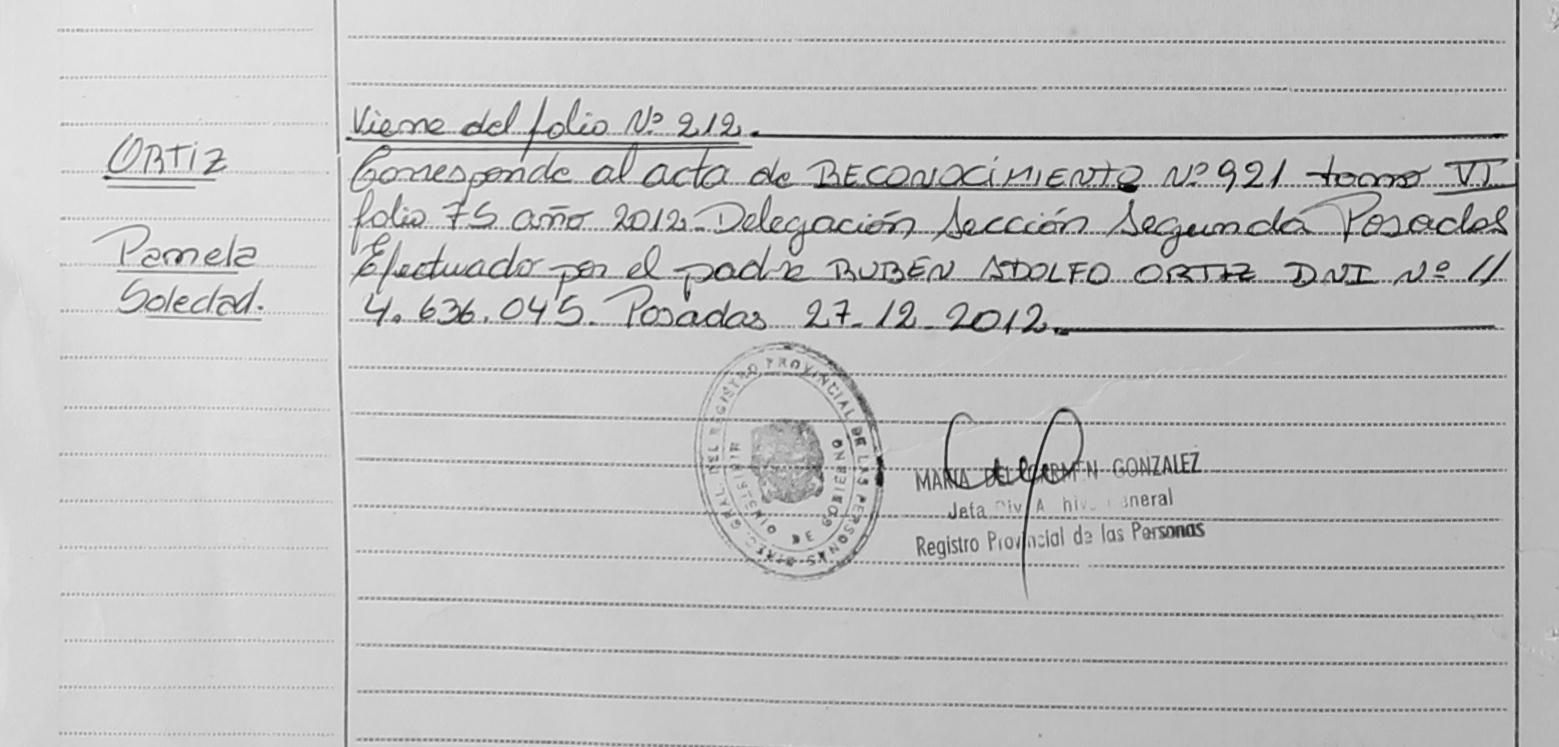 ORTIZ
Pamela
Soledad.
Viene del folio Nº 212.
Corresponde al acta de RECONOCIMIENTO Nº 921 tomo VI
folio 75 año 2012. Delegación Sección Segunda Posadas
Efectuado por el padre RUBEN ADOLFO ORTIZ DNI Nº //
4.636.045. Posadas 27-12-2012.
DIREC. GRAL. DEL REGISTRO PROVINCIAL DE LAS PERSONAS
MINISTERIO DE GOBIERNO
MARIA DEL CARMEN GONZALEZ
Jefa Div. A hiv eneral
Registro Provincial de las Personas